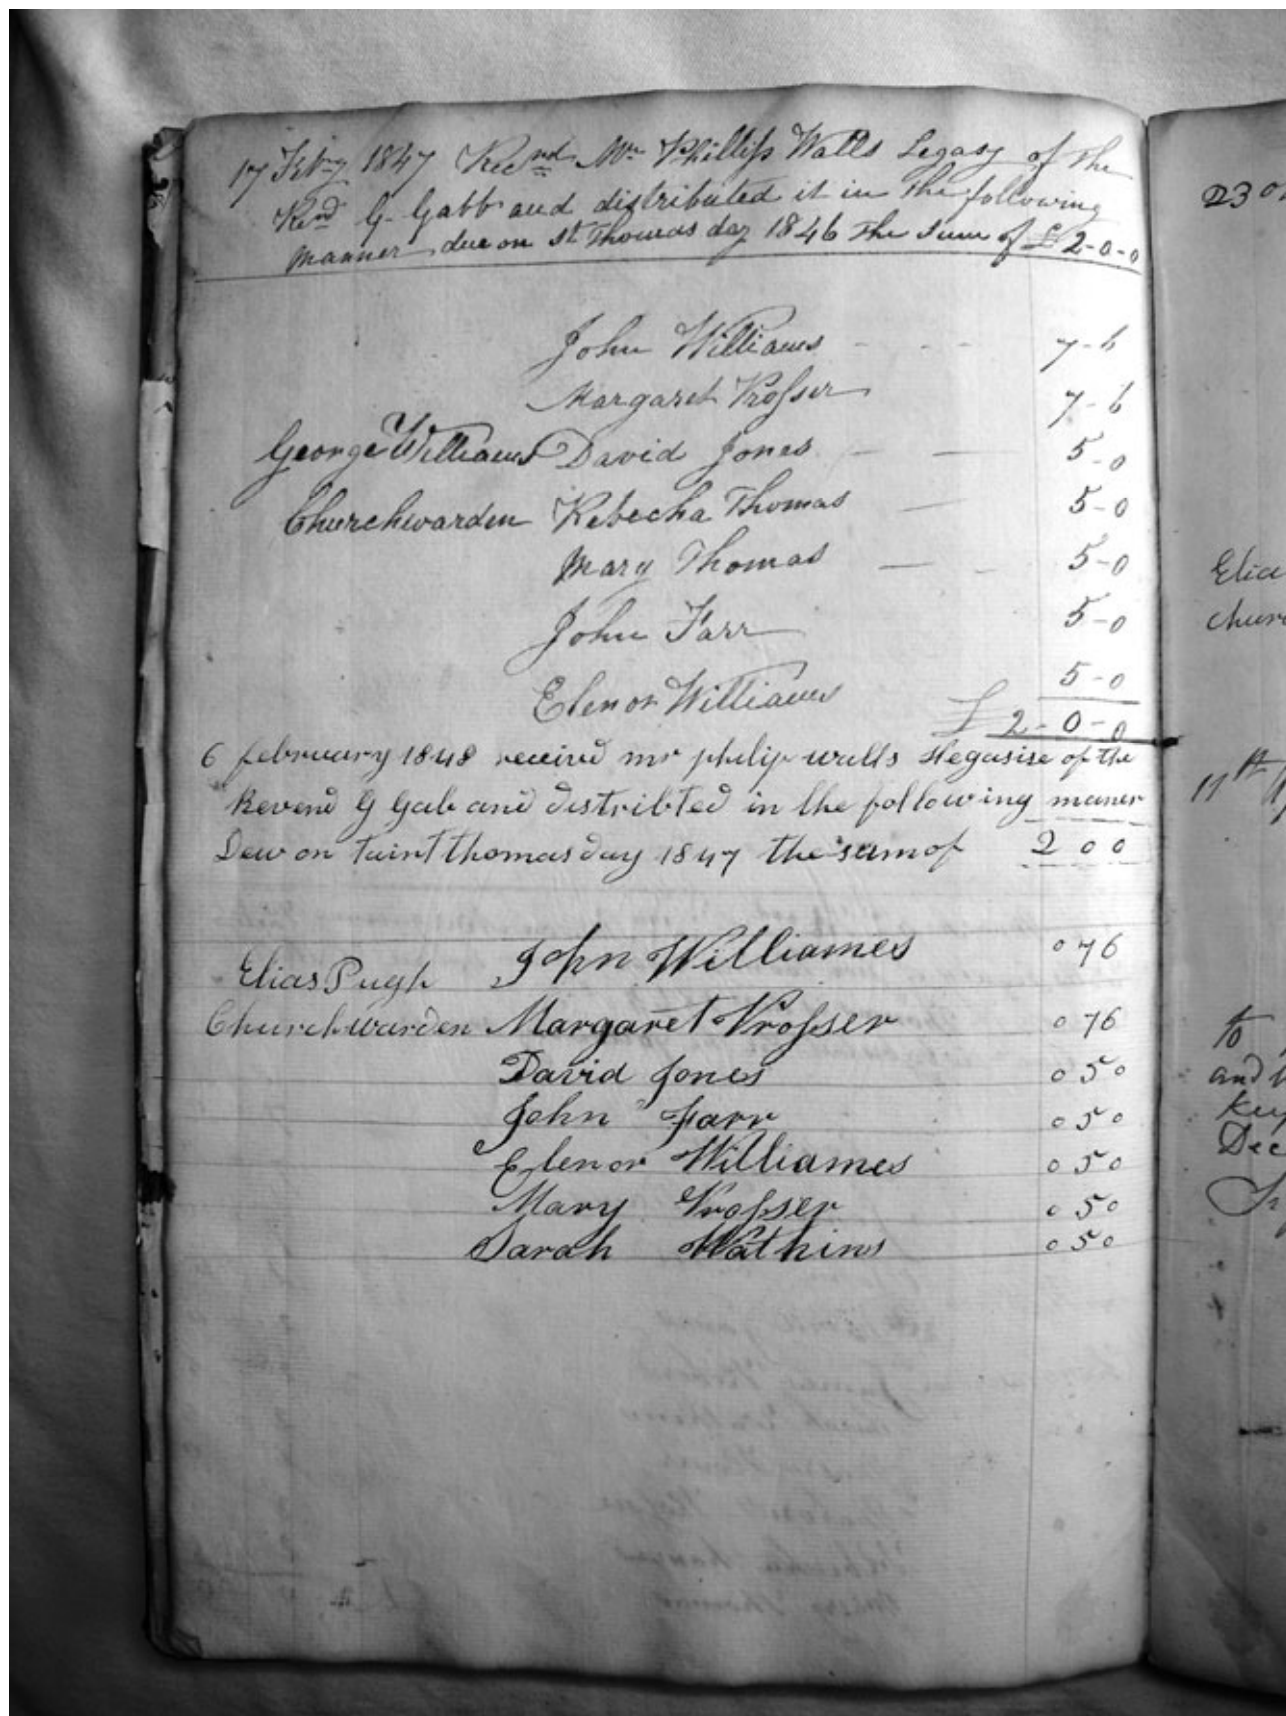 17 Febry 1847 Recnd Mr Phillips Watts Legasy of the
Rend G. Gabb and distributed it in the following
manner due on St Thomas day 1846 The Sum of £2-0-0
John Williams - - - 7-6
Margaret Prosser 7-6
George Williams David Jones - - 5-0
Churchwarden Rebecka Thomas - 5-0
Mary Thomas - - 5-0
John Farr 5-0
Elenor Williams 5-0
£2-0-0
6 february 1848 received mr philip walls legasise of the
Revend G Gab and distribted in the following maner
Dew on saint thomas day 1847 the sum of 2 0 0
John Williames 0 7 6
Elias Pugh
Churchwarden Margaret Prosser 0 7 6
David Jones 0 5 0
John Farr 0 5 0
Elenor Williames 0 5 0
Mary Prosser 0 5 0
Sarah Watkins 0 5 0
23
Elia
Chur
17th
to
and
Dec